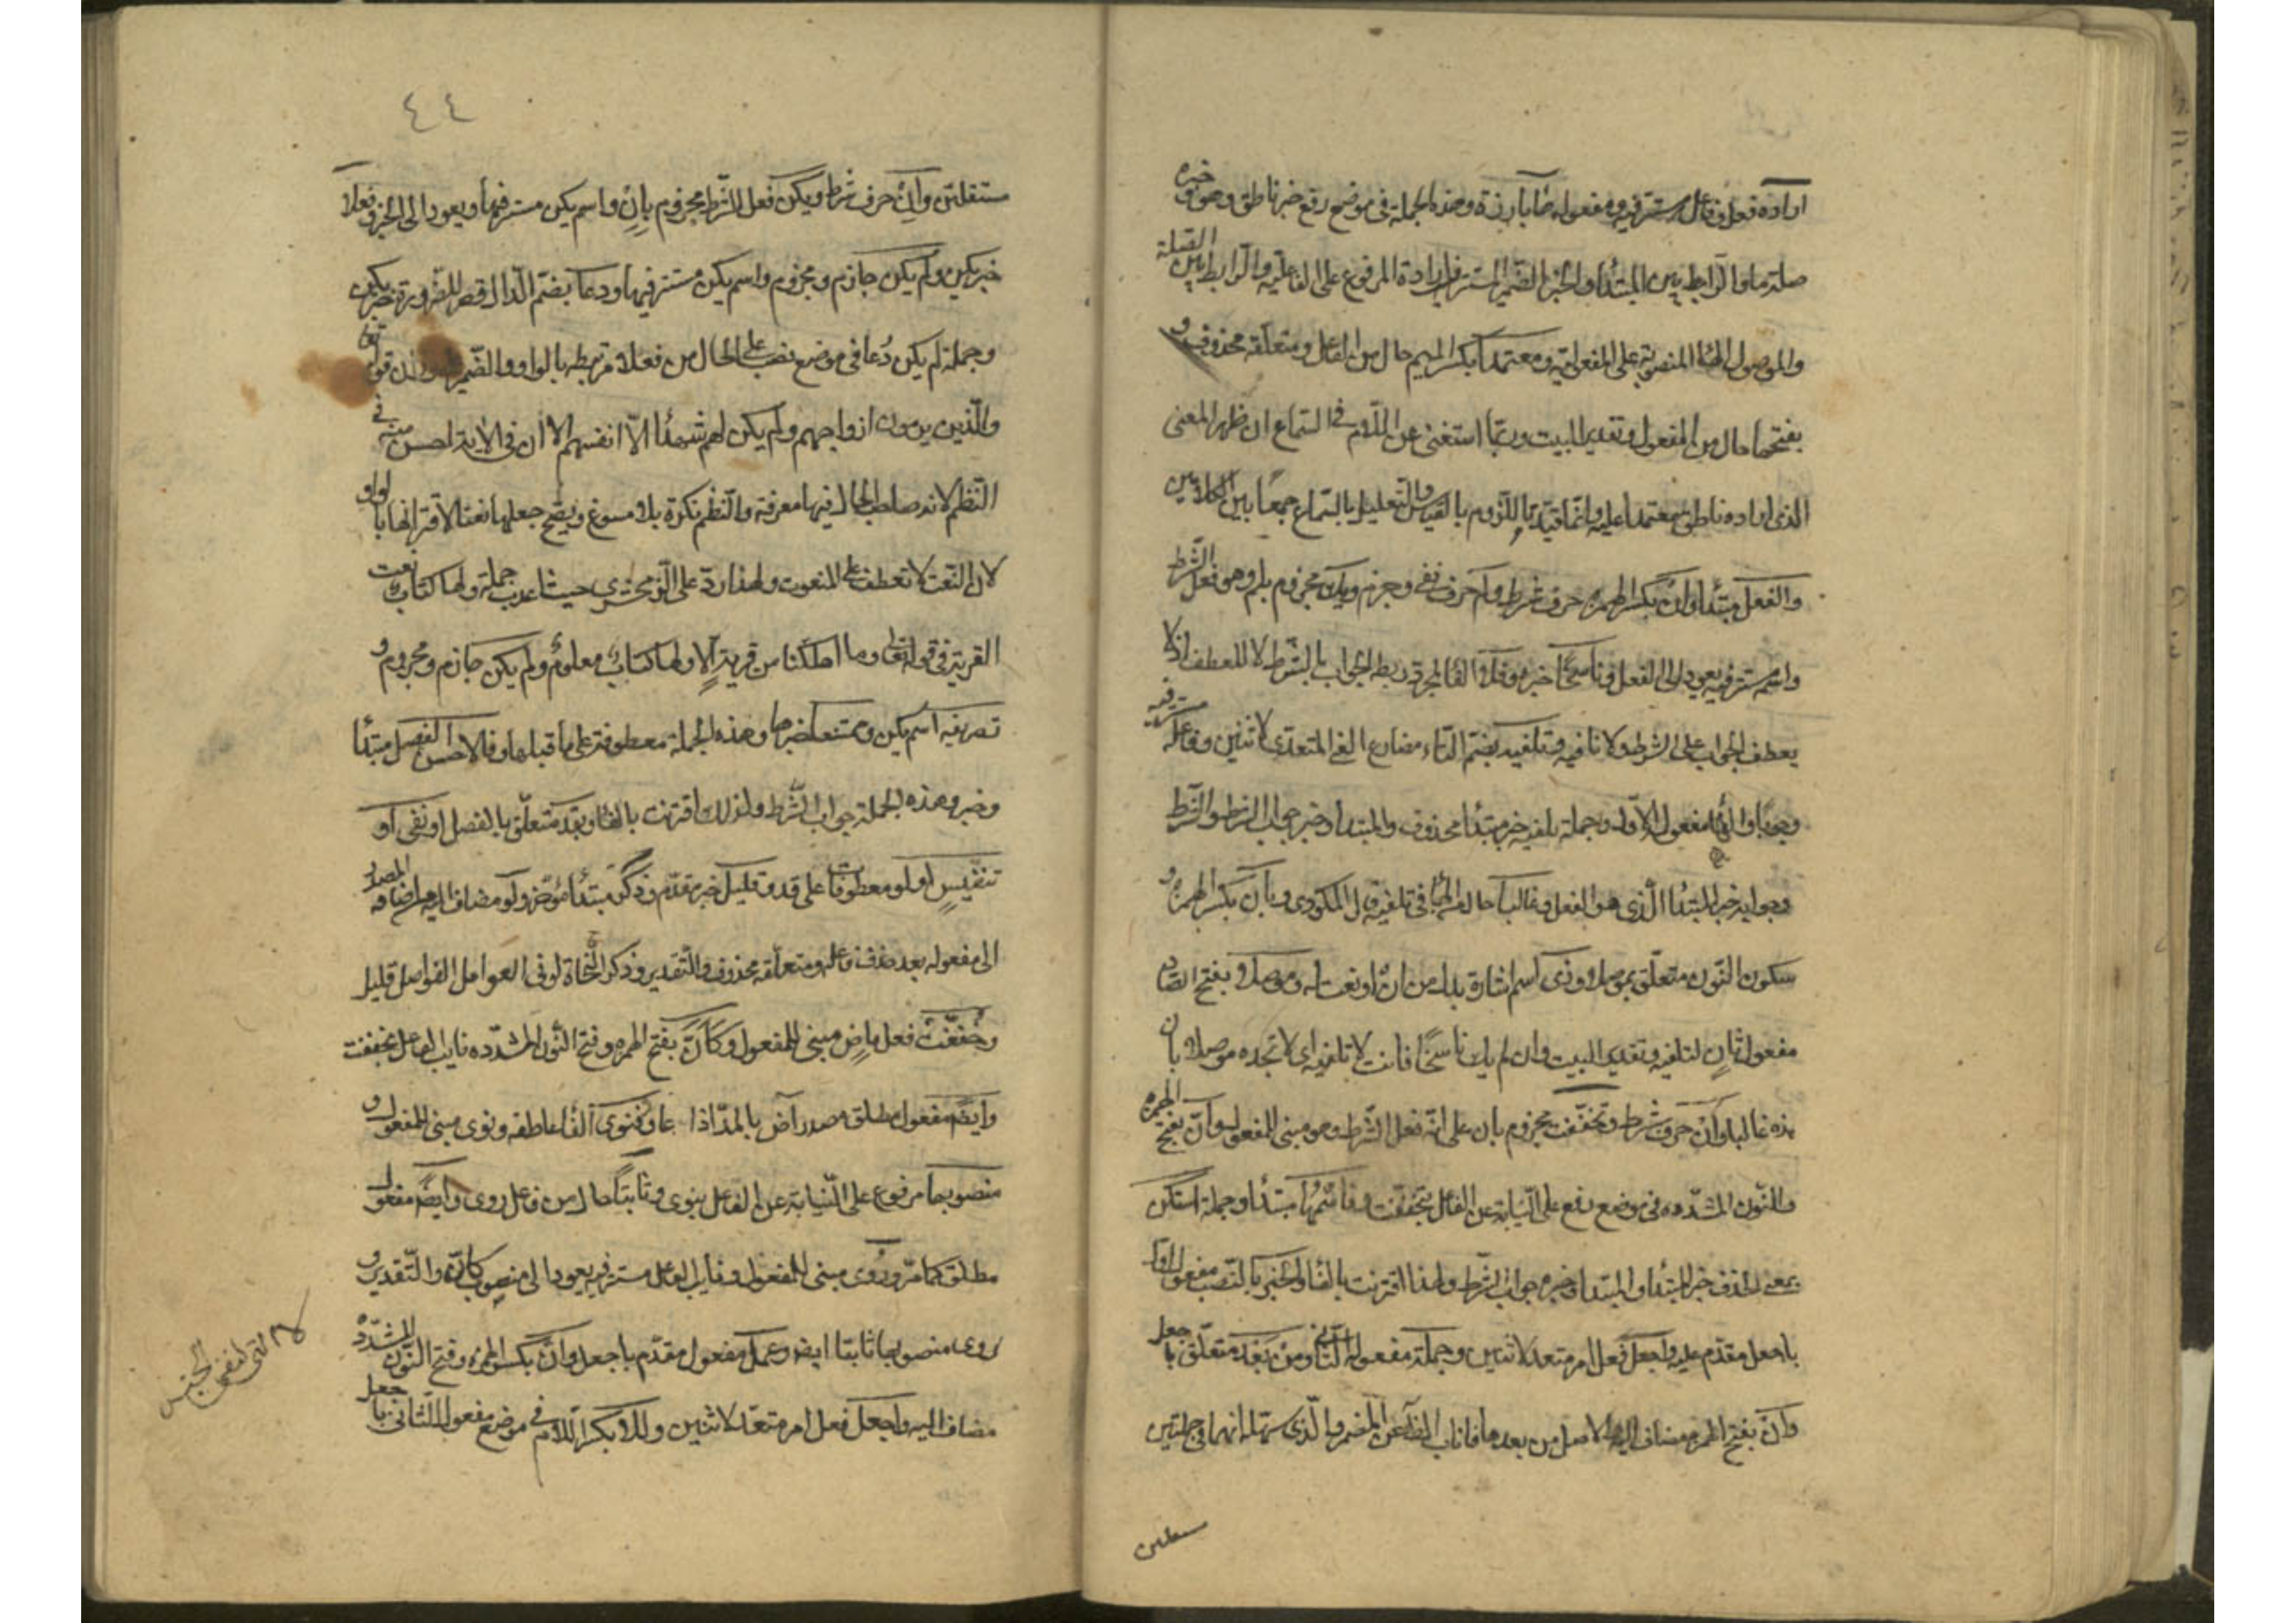 اراده فعل وفاعل مستتر فيه ومفعوله ضابارزة وهذه الجملة في موضع رفع خبر ناطق وهو وخبره
صلة ما والرابط بين المبتدأ والخبر الضمير المستتر في ارادة المرفوع على الفاعلية والرابط بين الصلة
والموصول الهاء المنصوبة على المفعولية ومعتمدا بكسر الميم حال من الفاعل ومتعلقه محذوف و
بفتحها حال من المفعول وتقدير البيت وربما استغنى عن اللام في السماع ان ظهر المعنى
الذي اراده ناطق معتمدا عليه وانما قيدنا اللزوم بالقياس والتعليل بالسماع جمعا بين الكلامين
والفعل مبتدأ وان بكسر الهمزه حرف شرط ولم حرف نفي وجزم ويك مجزوم بلم وهو فعل الشرط
واسم مستتر فيه يعود الى الفعل وناسخا خبره وفلا الفا لمجرد ربط الجواب بالشرط لا للعطف اذ لا
يعطف الجواب على الشرط ولا نافيه وتلفيه بضم التاء مضارع الفي المتعدي لاثنين وفاعله مستتر فيه
وجوبا والهاء مفعوله الاول وجملة تلفيه خبر مبتدأ محذوف والمبتدا وخبره جواب الشرط والشرط
وجوابه خبر المبتدا الذي هو الفعل وغالبا حال من الهاء في تلفيه قال المكودي وبان بكسر الهمزه و
سكون النون متعلق بموصلا وذي اسم اشارة بدل من ان او نعت له وموصلا بفتح الصاد
مفعول ثان لتلفيه وتقدير البيت وان لم يك ناسخا فانت لا تلفيه اي لا تجده موصلا بان
هذه غالبا وان حرف شرط وتخفف مجزوم بان على انه فعل الشرط وهو مبني للمفعول وان بفتح الهمزه
والنون المشدده في موضع رفع على النيابة عن الفاعل بتخفف وفاسمها مبتدأ وجملة استكن
بمعنى الحذف خبر المبتدأ والمبتدا وخبره جواب الشرط ولهذا اقترنت بالفا والخبر بالنصب مفعول اول
باجعل مقدم عليه واجعل فعل امر متعد لاثنين وجملة مفعوله الثاني ومن بعد متعلق باجعل
وان بفتح الهمزه مضاف اليها والاصل من بعدها فاناب الظاهر عن المضمر والذي سهله انهما في جملتين
مستقلتين
٤٤
مستقلتين وان حرف شرط ويكن فعل الشرط مجزوم بان واسم يكن مستتر فيها ويعود الى الخبر وفعلا
خبر يكن ولم يكن جازم ومجزوم واسم يكن مستتر فيها ودعا بضم الدال وقصر للضرورة خبر يكن
وجملة لم يكن دعا في موضع نصب على الحال من فعلا مرتبطه بالواو والضمير وزان قوله تعا
والذين يرمون ازواجهم ولم يكن لهم شهدا الا انفسهم الا ان في الاية احسن منه في
النظم لان صاحب الحال فيها معرفة والنظم نكرة بلا مسوغ ويقبح جعلها نعتا لاقترانها بالواو
لان النعت لا تعطف على المنعوت ولهذا رد على الزمخشري حيث اعرب جملة ولها كتاب نعت
القرية في قوله تعا وما اهلكنا من قرية الا ولها كتاب معلوم ولم يكن جازم ومجزوم و
تصريفه اسم يكن وممتنعا خبرها وهذه الجملة معطوفة على ما قبلها وفالاحسن الفصل مبتدأ
وخبر وهذه الجملة جواب الشرط ولذلك اقترنت بالفا وبقد متعلق بالفصل او نفي او
تنفيس او لو معطوفات على قد وقليل خبر مقدم وذكر مبتدأ مؤخر ولو مضاف اليه من اضافه المصدر
الى مفعوله بعد حذف فاعله ومتعلقه محذوف والتقدير وذكر النحاة لو في العوامل الفواصل قليل
وخففت فعل ماض مبني للمفعول وكأن بفتح الهمزه وفتح النون المشدده نايب الفاعل بخففت
وايضا مفعول مطلق مصدر آض بالمد اذا عاد وفنوي الفا عاطفه ونوي مبني للمفعول و
منصوبها مرفوع على النيابة عن الفاعل بنوي وثابتا حال من فاعل روي وايضا مفعول
مطلق كما مر وروي مبني للمفعول ونايب الفاعل مستتر فيه يعود الى منصوب كان والتقدير و
روي منصوبها ثابتا ايضا وعمل مفعول مقدم باجعل وان بكسر الهمزه وفتح النون المشدده
مضاف اليه واجعل فعل امر متعد لاثنين وللا بكسر اللام في موضع مفعوله الثاني باجعل
لا التي لنفي الجنس